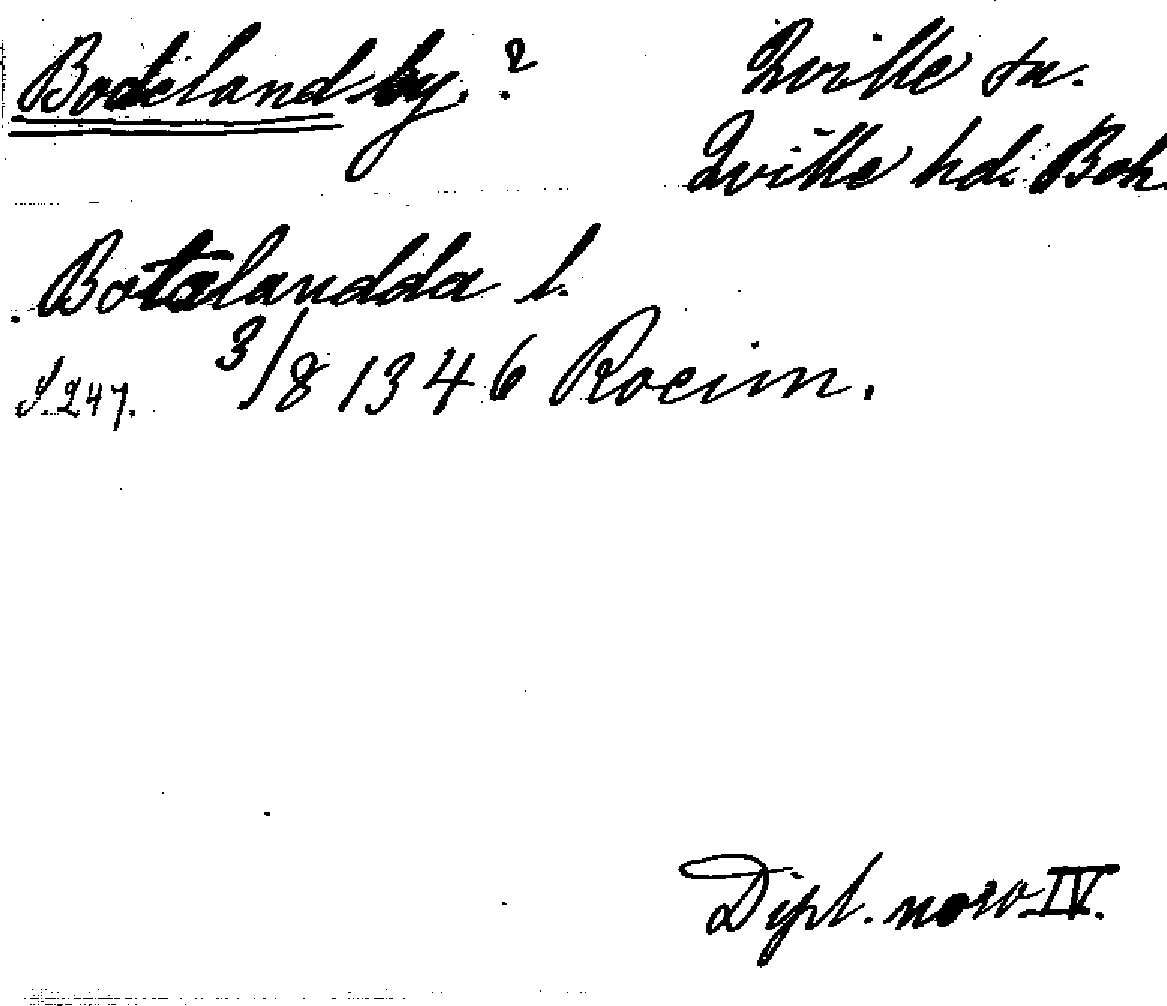 Bodeland by. ?
Qville sn.
Qville hd. Boh.
Botalandda l.
S. 247. 3/8 1346 Rocim.
Dipl. norv. IV.